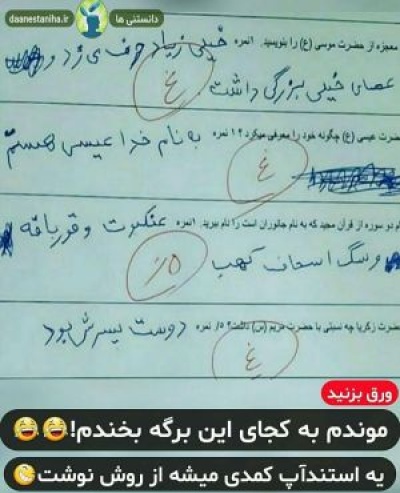 دانستنی ها
daanestaniha.ir
معجزه از حضرت موسی (ع) را بنویسید. ۱نمره خیلی زیاد حرف می زد و
عصای خیلی بزرگی داشت. غ
ضرت عیسی (ع) چگونه خود را معرفی میکرد؟ ۱ نمره به نام خدا عیسی هستم
غ
ام دو سوره از قرآن مجید که به نام جانوران است را نام ببرید. ۱نمره عنکبوت و قورباقه
و سگ اسحاف کهب ۵/.
ضرت زکریا چه نسبتی با حضرت مریم (س) داشت؟ ۵/. نمره دوست پسرش بود
غ
ورق بزنید
موندم به کجای این برگه بخندم!😂😂
یه استندآپ کمدی میشه از روش نوشت